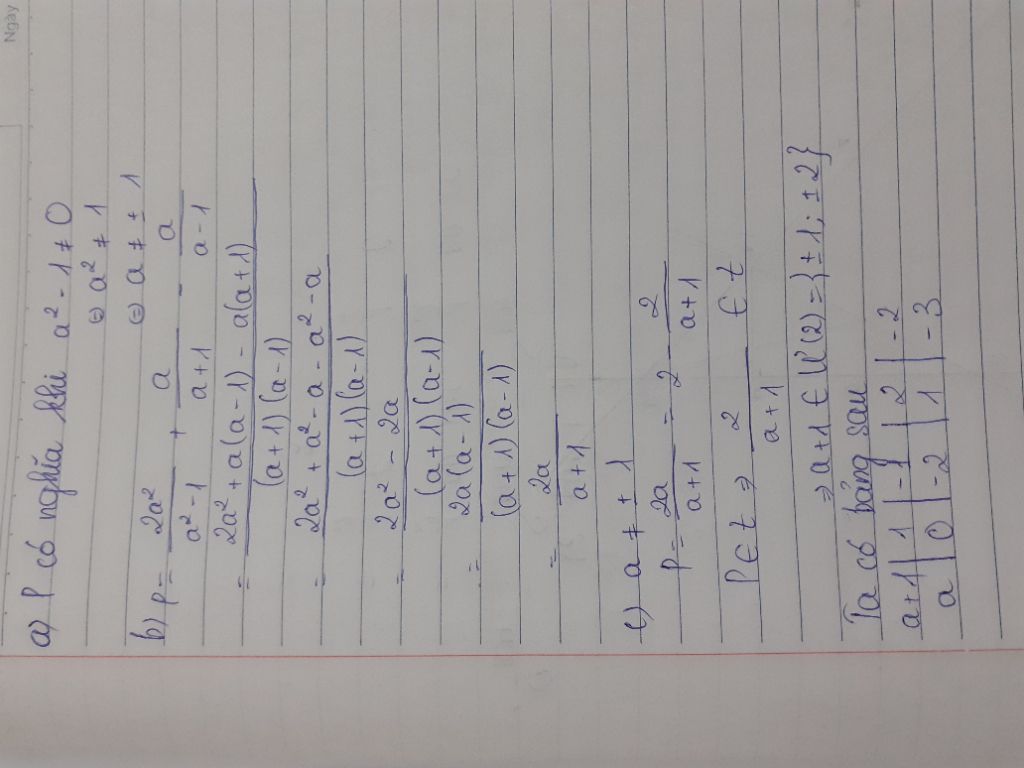 Ngày
a) P có nghĩa khi a² - 1 ≠ 0
⇔ a² ≠ 1
⇔ a ≠ ± 1
b) P = 2a²/(a² - 1) + a/(a + 1) - a/(a - 1)
= (2a² + a(a - 1) - a(a + 1))/((a + 1)(a - 1))
= (2a² + a² - a - a² - a)/((a + 1)(a - 1))
= (2a² - 2a)/((a + 1)(a - 1))
= 2a(a - 1)/((a + 1)(a - 1))
= 2a/(a + 1)
c) a ≠ ± 1
P = 2a/(a + 1) = 2 - 2/(a + 1)
P ∈ t ⇒ 2/(a + 1) ∈ t
⇒ a + 1 ∈ Ư(2) = {± 1; ± 2}
Ta có bảng sau
a + 1 | 1 | -1 | 2 | -2
a | 0 | -2 | 1 | -3